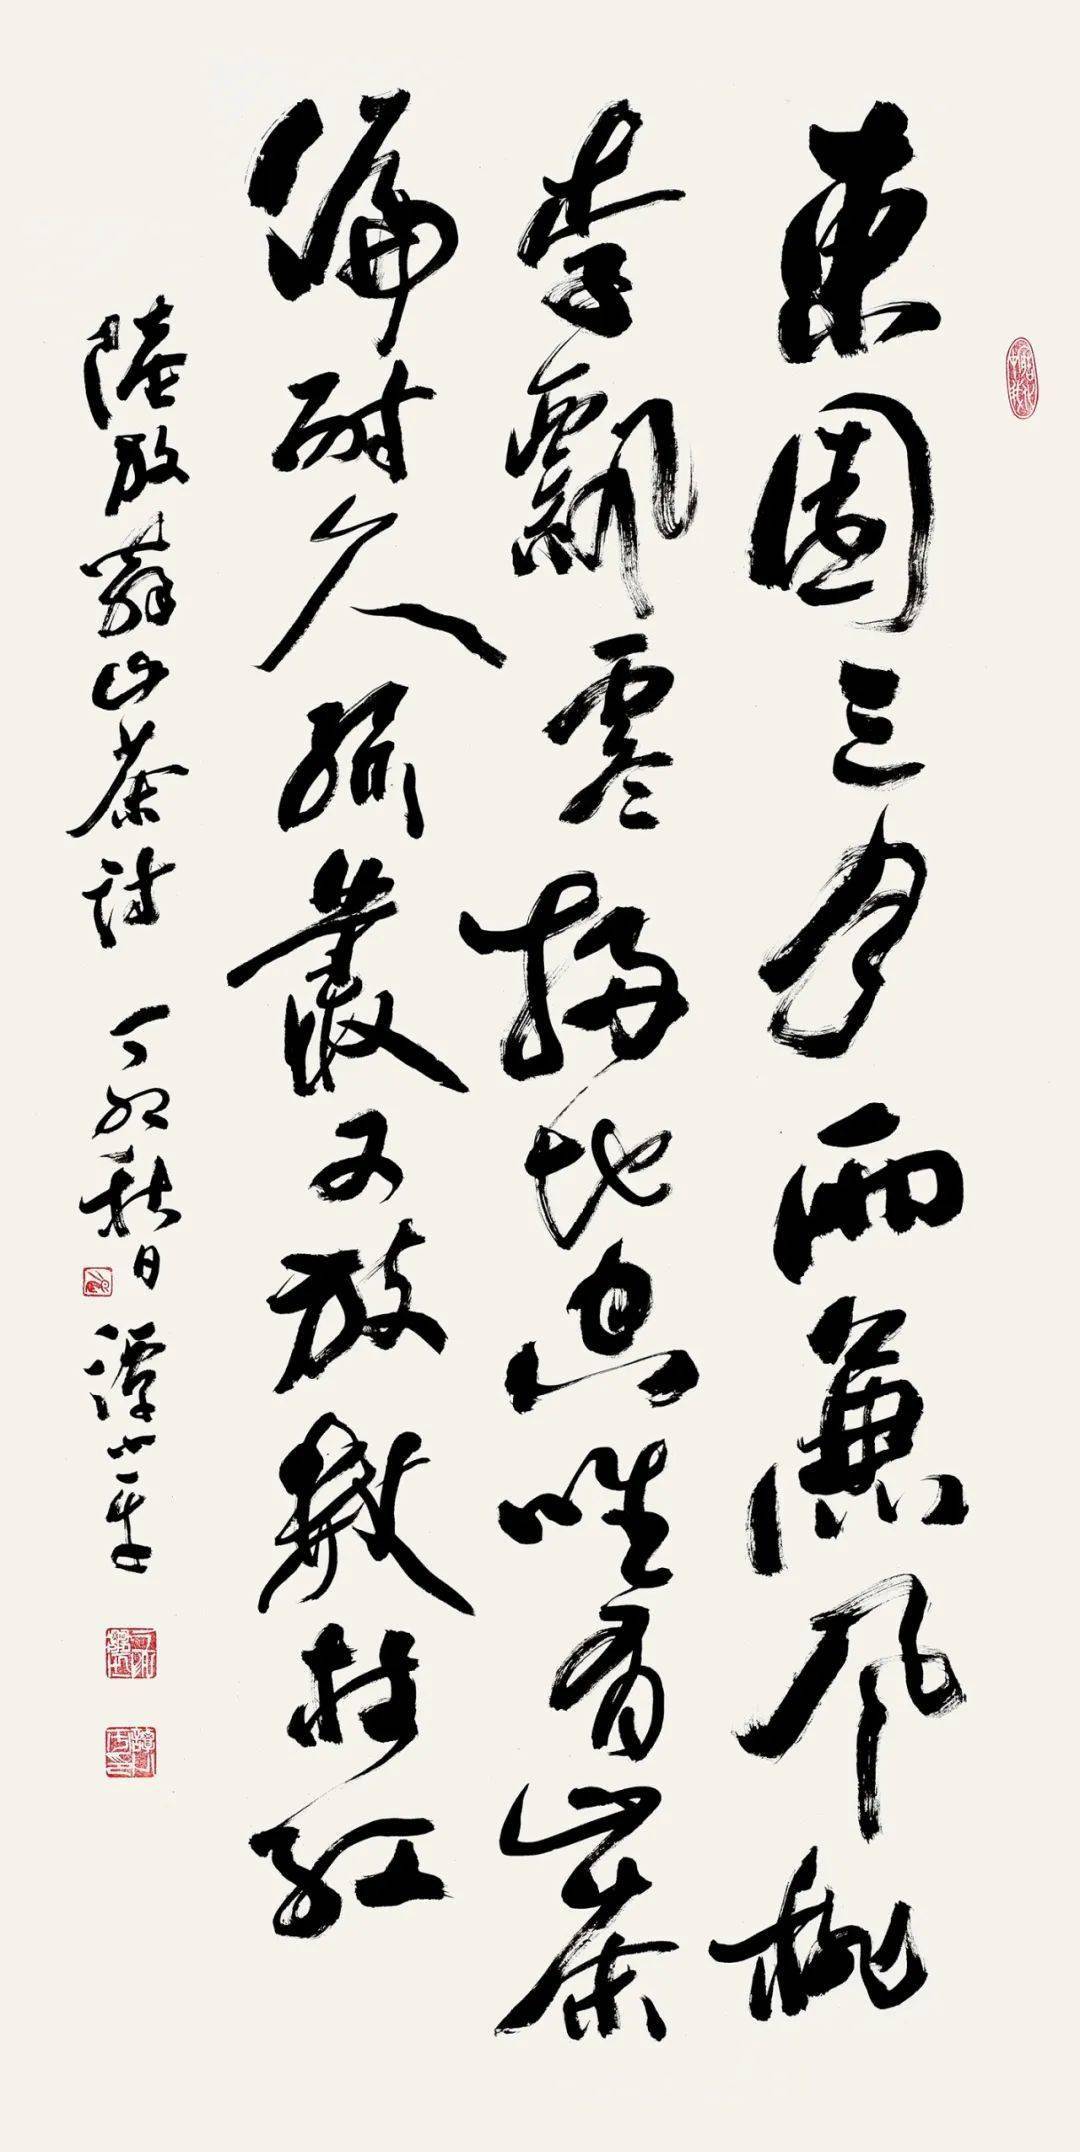 東園三月雨兼風桃
李飄零掃地空唯有山茶
偏耐久綠叢又放數枝紅
陸放翁山茶詩 丁酉秋日 譚以平